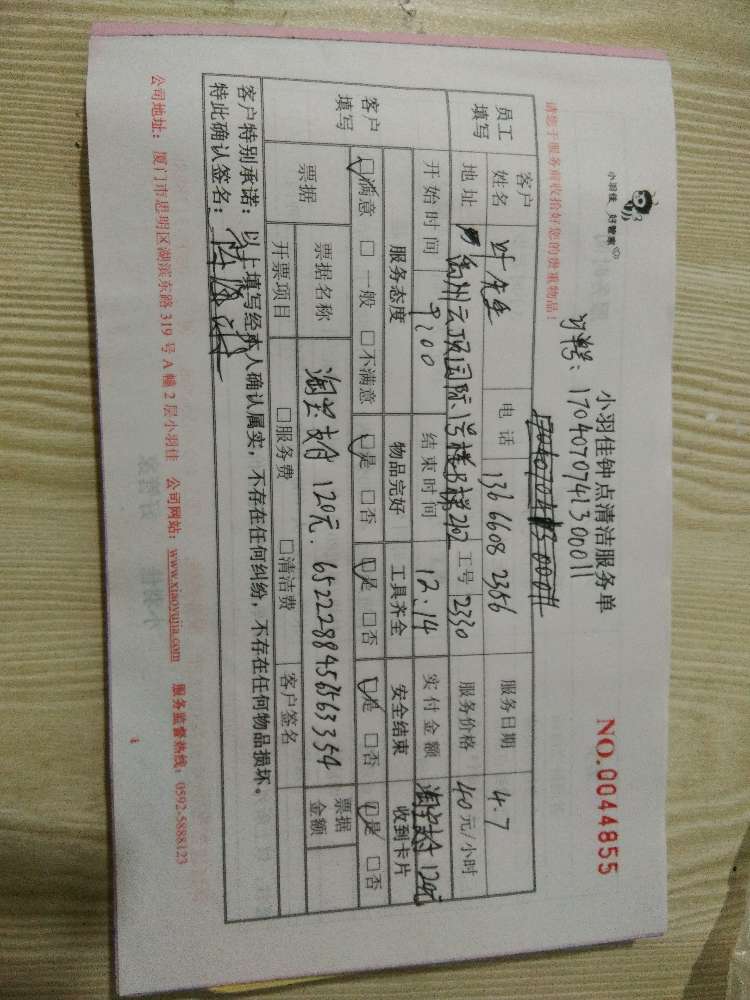 小羽佳 好管家
小羽佳钟点清洁服务单
NO.0044855
订单号：1704070741300011
请您于服务前收拾好您的贵重物品！
员工填写
客户姓名 叶先生 电话 136 6608 2356 服务日期 4.7
地址 禹州云顶国际1号楼B梯2102 工号 2330 服务价格 40元/小时
开始时间 9:00 结束时间 12.14 实付金额 淘宝支付120元
客户填写
服务态度 物品完好 工具齐全 安全结束 收到卡片
☑满意 □一般 □不满意 ☑是 □否 ☑是 □否 ☑是 □否 ☑是 □否
票据
票据名称 淘宝支付 120元. 65222884563354 票据金额
开票项目 □服务费 □清洁费 客户签名
客户特别承诺：以上填写经本人确认属实，不存在任何纠纷，不存在任何物品损坏。
特此确认签名：
公司地址：厦门市思明区湖滨东路319号A幢2层小羽佳 公司网站：www.xiaoyujia.com 服务监督热线：0592-5888123